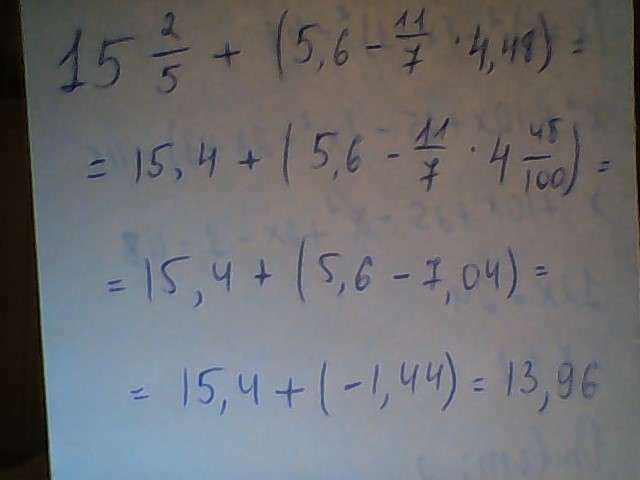 15 2/5 + (5,6 - 11/7 · 4,48) =
= 15,4 + (5,6 - 11/7 · 4 48/100) =
= 15,4 + (5,6 - 7,04) =
= 15,4 + (-1,44) = 13,96